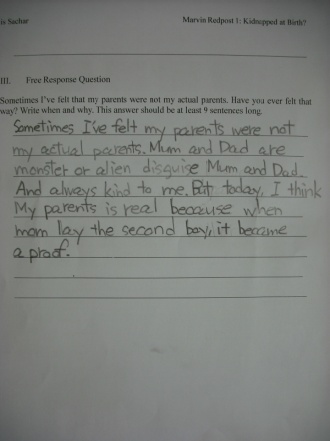 is Sachar
Marvin Redpost 1: Kidnapped at Birth?
III. Free Response Question
Sometimes I've felt that my parents were not my actual parents. Have you ever felt that
way? Write when and why. This answer should be at least 9 sentences long.
Sometimes I've felt my parents were not
my actual parents. Mum and Dad are
monster or alien disguise Mum and Dad.
And always kind to me. But today, I think
My parents is real because when
mom lay the second boy, it became
a proof.